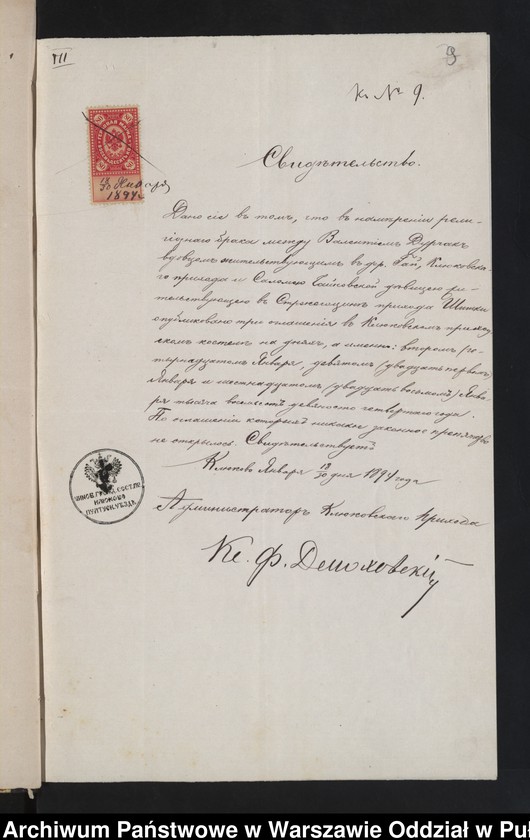 VII
9
к № 9.
18 30 Января
1894 г.
Свидѣтельство.
Дано сіе въ томъ, что въ намѣреніи рели-
гіознаго брака между Валентіемъ Дургакъ
вдовцомъ жительствующимъ въ дер. Гай, Клюковска-
го прихода и Саломею дѣвицею жи-
тельствующею въ прихода Шинки
опубликовано три оглашенія въ Клюковскомъ приход-
скомъ костелѣ на дняхъ, а именно: второмъ /че-
тырнадцатомъ Января, девятомъ /двадцать первомъ/
Января и шестнадцатомъ /двадцать восьмомъ/ Янва-
ря тысяча восемьсотъ девяносто четвертаго года.
По оглашеніи которыхъ никакое законное препятствіе
не открылось. Свидѣтельствуетъ
Клюково Января 18/30 дня 1894 года
Администраторъ Клюковскаго Прихода
Кс. Ф. Демоховскій
ЧИНОВ. ГРАЖД. СОСТ. ПР.
КЛЮКОВО
ПУЛТУСК. УѢЗДА
Archiwum Państwowe w Warszawie Oddział w Puł